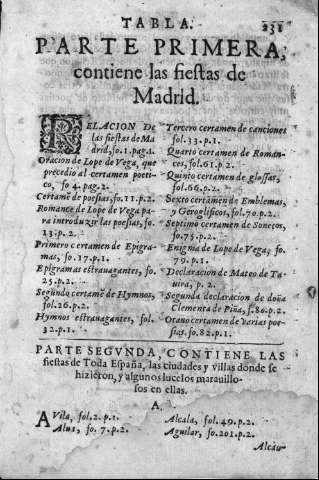 TABLA.
231
PARTE PRIMERA,
contiene las fiestas de
Madrid.
RELACION De
las fiestas de Ma
drid, fo.1.pag.1.
Oracion de Lope de Vega, que
precedio al certamen poeti-
co, fo 4.pag.2.
Certamē de poesias, fo.11.p.2.
Romance de Lope de Vega pa-
ra introduzir las poesias, fo.
13.p.2.
Primero certamen de Epigra-
mas, fo.17.p.1.
Epigramas estrauagantes, fo.
25.p.2.
Segūdo certamē de Hymnos,
fol.26.p.2.
Hymnos estrauagantes, fol.
32.p.1.
Tercero certamen de canciones
fol.33.p.1.
Quarto certamen de Roman-
ces, fol.61.p.2.
Quinto certamen de glossas,
fol.66.p.2.
Sexto certamen de Emblemas,
y Geroglificos, fol.70.p.2.
Septimo certamen de Sonetos,
fo.75.p.2.
Enigma de Lope de Vega, fo.
79.p.1.
Declaracion de Mateo de Ta-
uira, p. 2.
Segunda declaracion de doña
Clementa de Piña, f.80.p.2.
Octauo certamen de varias poe-
sias, fo.82.p.1.
PARTE SEGVNDA, CONTIENE LAS
fiestas de Toda España, las ciudades y villas donde se
hizieron, y algunos sucesos marauillo-
sos en ellas.
A.
AVila, fol.2.p.1.
Alus, fo.7.p.2.
Alcala, fol.49.p.2.
Aguilar, fo.201.p.2.
Alcau-